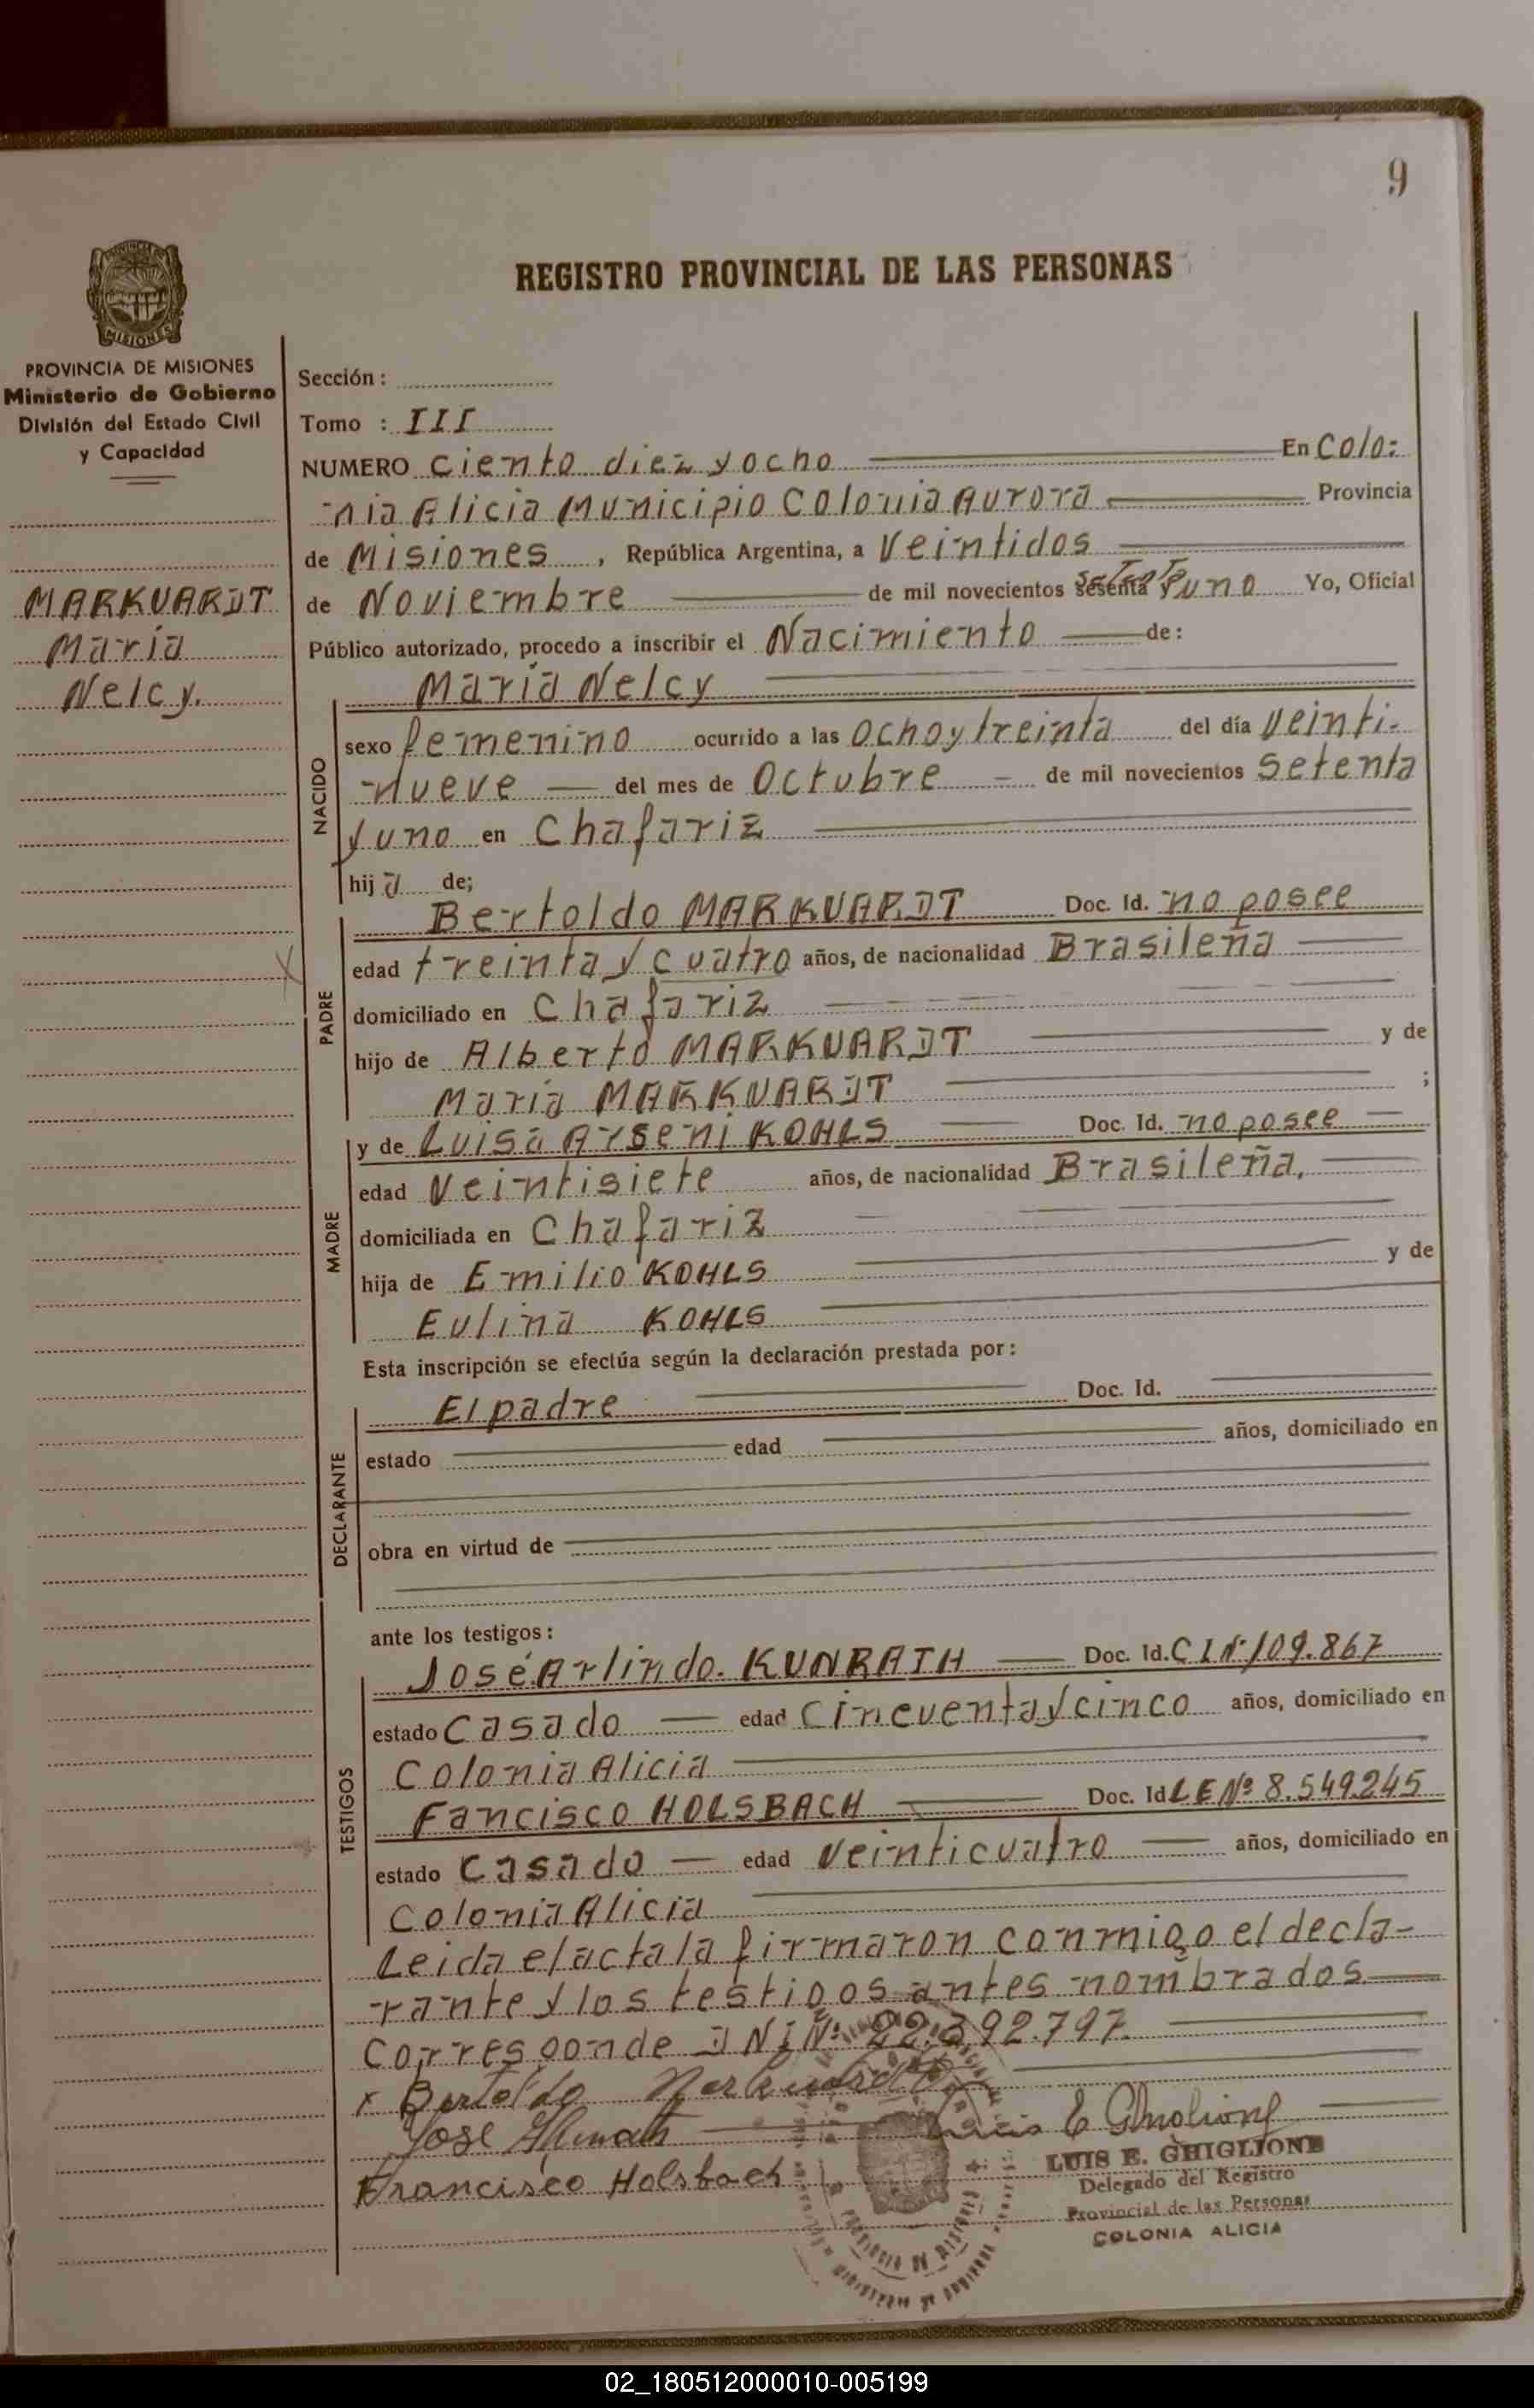 9
REGISTRO PROVINCIAL DE LAS PERSONAS
PROVINCIA DE MISIONES
Ministerio de Gobierno
División del Estado Civil
y Capacidad
MARKVARDT
María
Nelcy.
Sección :
Tomo : III
NUMERO ciento diez y ocho En Colo-
nia Alicia Municipio Colonia Aurora Provincia
de Misiones , República Argentina, a Veintidos
de Noviembre de mil novecientos sesenta setenta y uno Yo, Oficial
Público autorizado, procedo a inscribir el Nacimiento de:
María Nelcy
NACIDO
sexo femenino ocurrido a las ocho y treinta del día veinti-
nueve del mes de Octubre de mil novecientos setenta
y uno en Chafariz
hija de;
PADRE
Bertoldo MARKVARDT Doc. Id. no posee
edad treinta y cuatro años, de nacionalidad Brasileña
domiciliado en Chafariz
hijo de Alberto MARKVARDT y de
María MARKVARDT ;
MADRE
y de Luisa Arseni KOHLS Doc. Id. no posee
edad Veintisiete años, de nacionalidad Brasileña.
domiciliada en Chafariz
hija de Emilio KOHLS y de
Eulina KOHLS
Esta inscripción se efectúa según la declaración prestada por:
DECLARANTE
El padre Doc. Id.
estado edad años, domiciliado en
obra en virtud de
ante los testigos:
TESTIGOS
José Arlindo. KUNRATH Doc. Id. CIN° 109.867
estado Casado edad Cincuenta y cinco años, domiciliado en
Colonia Alicia
Fancisco HOLSBACH Doc. Id LE Nº 8.549.245
estado Casado edad Veinticuatro años, domiciliado en
Colonia Alicia
Leida el acta la firmaron conmigo el decla-
rante y los testigos antes nombrados
Corresponde DNI Nº 22.392.797.
x Bertoldo Markvardt
José
Francisco Holsbach
Luis E Ghiglione
LUIS E. GHIGLIONE
Delegado del Registro
Provincial de las Personas
COLONIA ALICIA
02_180512000010-005199